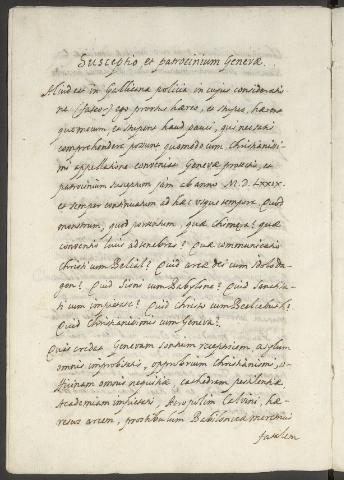 Susceptio et patrocinium Genevæ.
Aliud est in Gallicana policia in cujus consideratio
ne (fateor) ego prorsus hæreo, et stupeo, hærent
quo mecum, et stupent haud pauci, qui nec satis
comprehendere possunt quomodo cum Christianissi
mi appellatione conveniat Genevæ protectio, et
patrocinium susceptum jam ab anno M.D.LXXIX.
et semper continuatum ad hæc usque tempora. Quod
monstrum, quod portentum, quæ chimera? quæ
conventio lucis ad tenebras? Quæ communicatio
Christi cum Belial? Quid arcæ dei cum Idolo da-
gon? Quid Sioni cum Babylone? Quid Sanctita-
ti cum impietate? Quid Christo cum Beelzebub?
Quid Christianissimis cum Geneva?
Quis credat Genevam sontium receptricem, asylum
omnis improbitatis, opprobrium Christianismi, se
tinam omnis nequitiæ, cathedram pestilentiæ,
Academiam impietatis, Metropolim Calvini, hæ-
resum arcem, prostibulum Babilonicæ meretricis